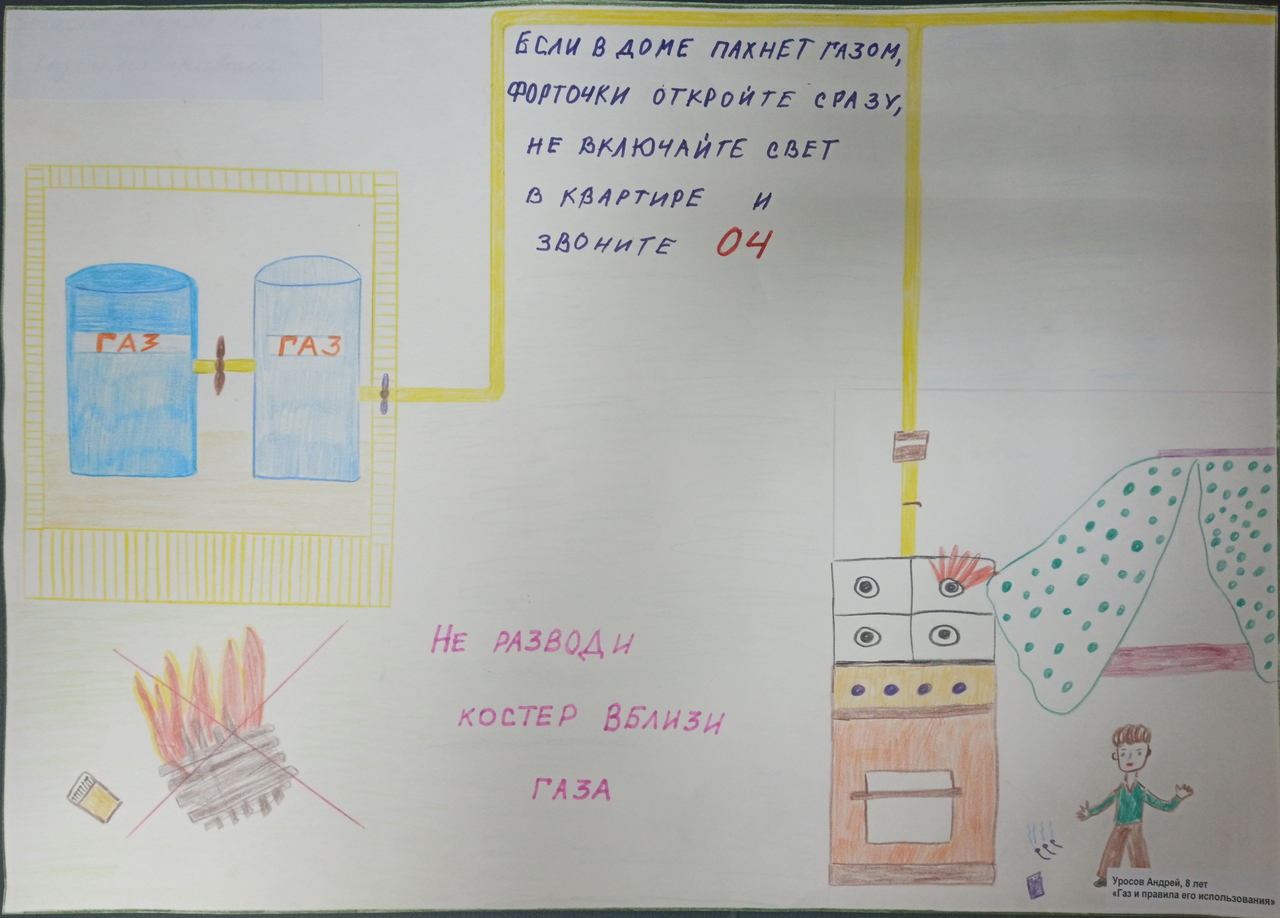 ЕСЛИ В ДОМЕ ПАХНЕТ ГАЗОМ,
ФОРТОЧКИ ОТКРОЙТЕ СРАЗУ,
НЕ ВКЛЮЧАЙТЕ СВЕТ
В КВАРТИРЕ И
ЗВОНИТЕ 04
ГАЗ
ГАЗ
НЕ РАЗВОДИ
КОСТЕР ВБЛИЗИ
ГАЗА
Уросов Андрей, 8 лет
«Газ и правила его использования»